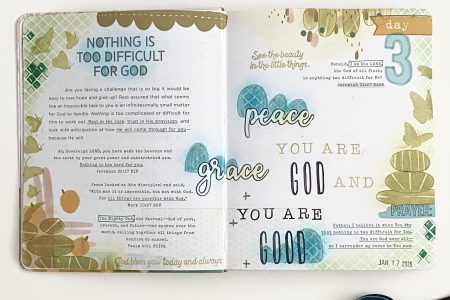 NOTHING IS
TOO DIFFICULT
FOR GOD
Are you facing a challenge that is so big it would be
easy to lose hope and give up? Rest assured that what seems
like an impossible task to you is an infinitesimally small matter
for God to handle. Nothing is too complicated or difficult for
Him to work out. Rest in His care, trust in His provision, and
look with anticipation at how He will come through for you—
because He will.
Ah, Sovereign LORD, you have made the heavens and
the earth by your great power and outstretched arm.
Nothing is too hard for you.
Jeremiah 32:17 NIV
Jesus looked at the disciples and said,
"With man it is impossible, but not with God.
For all things are possible with God."
Mark 10:27
The Mighty God, the Eternal—God of past,
present, and future—has spoken over the
world, calling together all things from
sunrise to sunset.
Psalm 50:1
God bless you today and always
day
3
See the beauty
in the little things.
Behold, I am the LORD,
the God of all flesh;
is anything too difficult for Me?
Jeremiah 32:27
peace
YOU ARE
grace
GOD AND
YOU ARE
GOOD
PRAYER:
Father, I believe it when You say
that nothing is too difficult for You.
You are God over all—
so I surrender my cares to You now.
JAN 17 2020